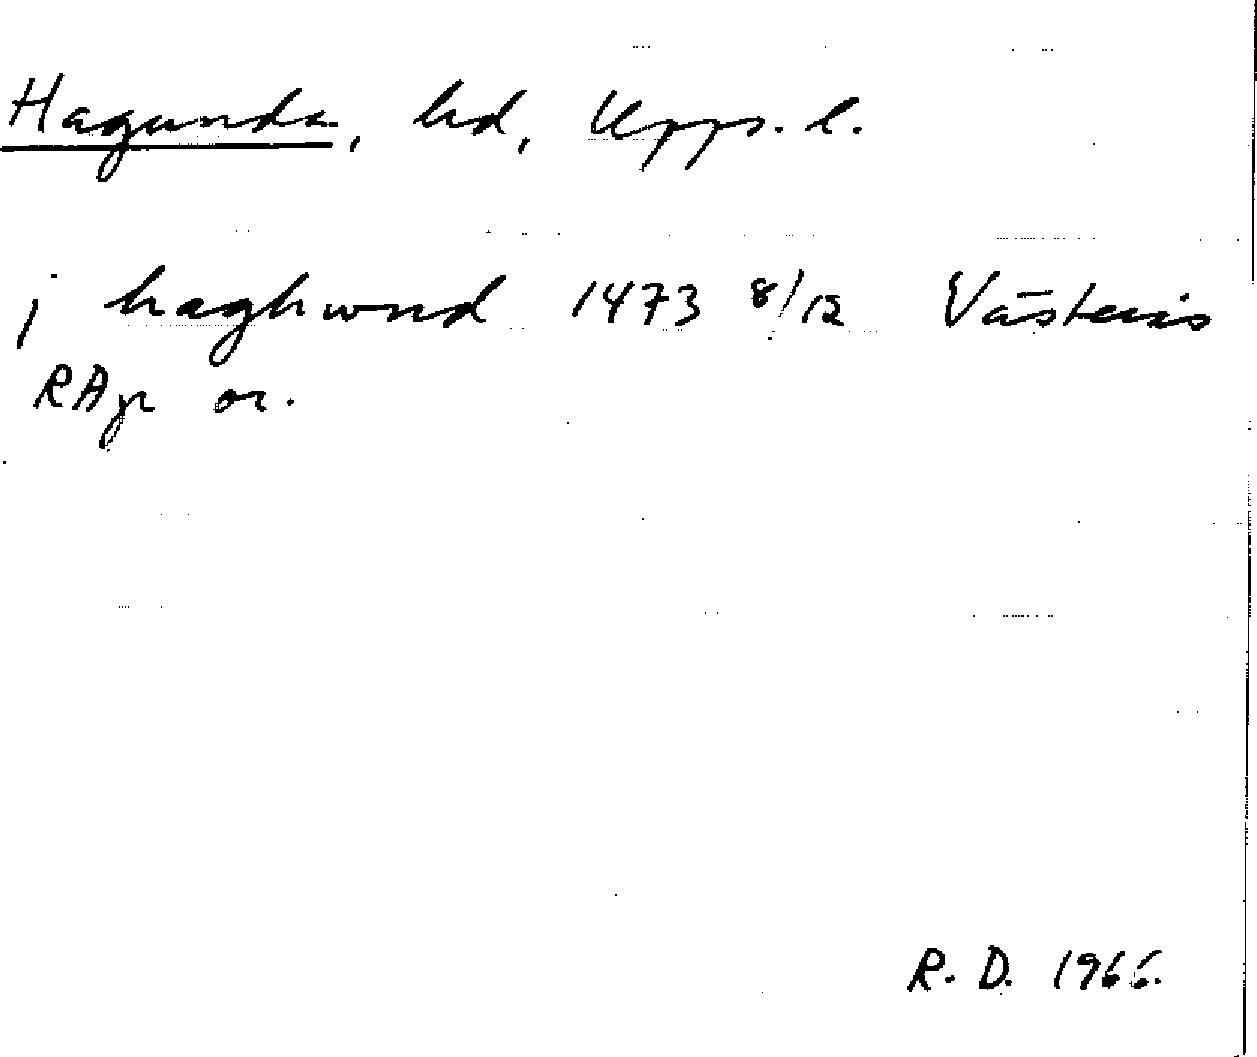 Hagunda, hd, Upps. l.
j haghwnd 1473 8/12 Västerås
RAp or.
R. D. 1966.